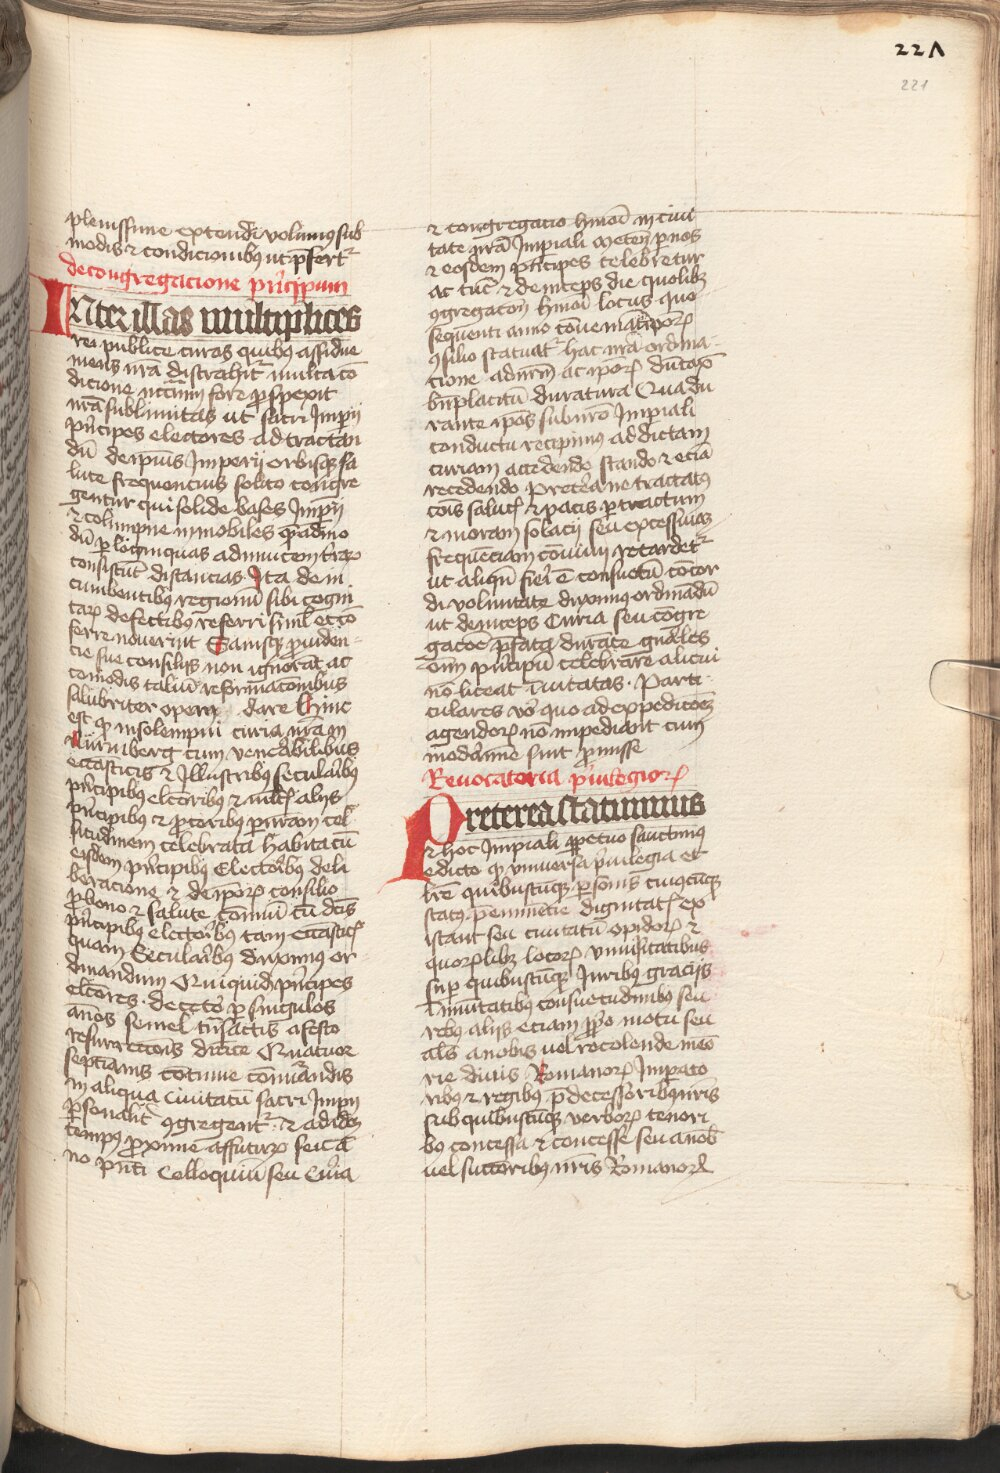 221
221
plenissime extendi volumus sub
modis et condicionibus ut prefertur
de congregacione principum
INter illas multiplices
rei publice curas quibus assidue
mens nostra distrahitur multa con
dicione necessarium fore perspexit
nostra sublimitas ut sacri Imperii
principes electores ad tractan
dum de ipsius Imperii orbisque sa
lute frequencius solito congre
gentur qui solide bases Imperii
et columpne immobiles quemadmo
dum per longinquas adinuicem terrarum
consistunt distancias Ita de in
cumbentibus regionum sibi cogni
tarum defectibus referri simul et con
ferre nouerint Sanisque prouiden
cie sue consilijs non ignorant ac
comodis talium reformacionibus
salubriter opem dare Hinc
est quod in solempni curia nostra in
Nurmberg cum venerabilibus
ecclesiasticis et Illustribus secularibus
principibus electoribus et multis alijs
principibus et proceribus per nostram cel
situdinem celebrata habita cum
eisdem principibus Electoribus deli
beracione et de ipsorum consilio
pro bono et salute communi cum dictis
principibus electoribus tam ecclesiasticis
quam Secularibus duximus or
dinandum Quinquid principes
electores de cetero per singulos
annos semel transactis a festo
resurreccionis dominice Quatuor
septimanis continue connumerandis
in aliqua Ciuitatum sacri Imperii
personaliter congregentur et ad idem
tempus proxime affuturum seu an
no presenti Colloquium seu Curia
et congregacio huiusmodi in ciui
tate nostra Impiali Metensi per nos
et eosdem principes celebretur
ac tunc et deinceps die quolibet
congregacionis huiusmodi locus quo
sequenti anno conueniatur ipsorum
consilio statuatur hac nostra ordina
cione ad nostrum ac ipsorum dumtaxat
beneplacitum duratura Qua du
rante ipsos sub nostro Impiali
conductu recepimus ad dictam
curiam accedendo stando et eciam
recedendo Preterea ne tractatus
communis salutis et pacis per tractum
et moram solacij seu excessiuam
frequenciam conuiuij retardetur
ut aliquando fieri est consuetum concor
di voluntate duximus ordinandum
ut deinceps Curia seu congre
gacione prefata durante generales
omnium principum celebrare alicui
non liceat inuitatas Parti
culares vero que ad expedicionem
agendorum non impediant cum
moderamine sint permisse
Reuocatoria priuilegiorum
Preterea statuimus
et hoc Impiali perpetuo sanctimus
edicto quod vniuersa priuilegia et
litere quibuscunque personis cuiuscunque
status preeminentie dignitatis ex
istant seu ciuitatum opidorum et
quorumlibet locorum vniuersitatibus
super quibuscunque Iuribus gracijs
Immunitatibus consuetudinibus seu
rebus alijs eciam proprio motu seu
alias a nobis vel recolende memo
rie diuis Romanorum Imperato
ribus et regibus predecessoribus nostris
sub quibuscunque verborum tenori
bus concessa et concesse seu a nobis
uel successoribus nostris Romanorum